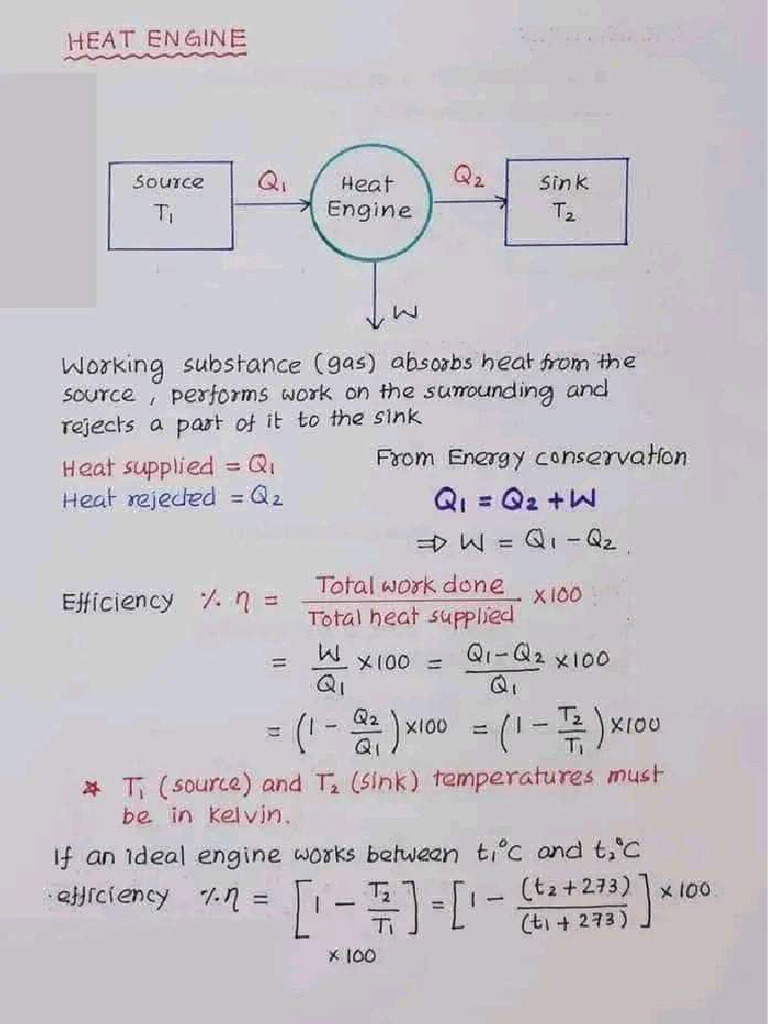 HEAT ENGINE
Source
T₁
Q₁
Heat
Engine
Q₂
Sink
T₂
W
Working substance (gas) absorbs heat from the
source, performs work on the surrounding and
rejects a part of it to the sink
Heat supplied = Q₁
Heat rejected = Q₂
From Energy conservation
Q₁ = Q₂ + W
⇒ W = Q₁ - Q₂.
Efficiency % η = Total work done / Total heat supplied × 100
= W/Q₁ × 100 = (Q₁ - Q₂)/Q₁ × 100
= (1 - Q₂/Q₁) × 100 = (1 - T₂/T₁) × 100
* T₁ (source) and T₂ (sink) temperatures must
be in kelvin.
If an ideal engine works between t₁°C and t₂°C
efficiency % η = [1 - T₂/T₁] = [1 - (t₂ + 273)/(t₁ + 273)] × 100
× 100